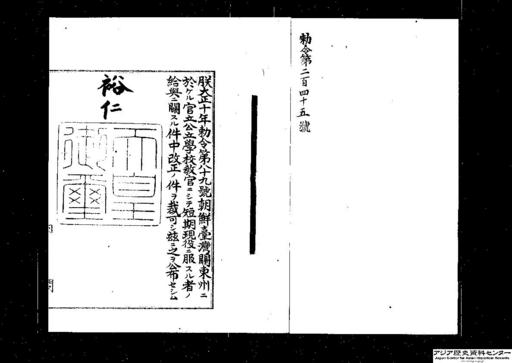 勅令第二百四十五號
朕大正十年勅令第八十九號朝鮮臺灣關東州ニ
於ケル官立公立學校敎官ニシテ短期現役ニ服スル者ノ
給與ニ關スル件中改正ノ件ヲ裁可シ玆ニ之ヲ公布セシム
裕仁
天皇
御璽
アジア歴史資料センター
Japan Center for Asian Historical Records